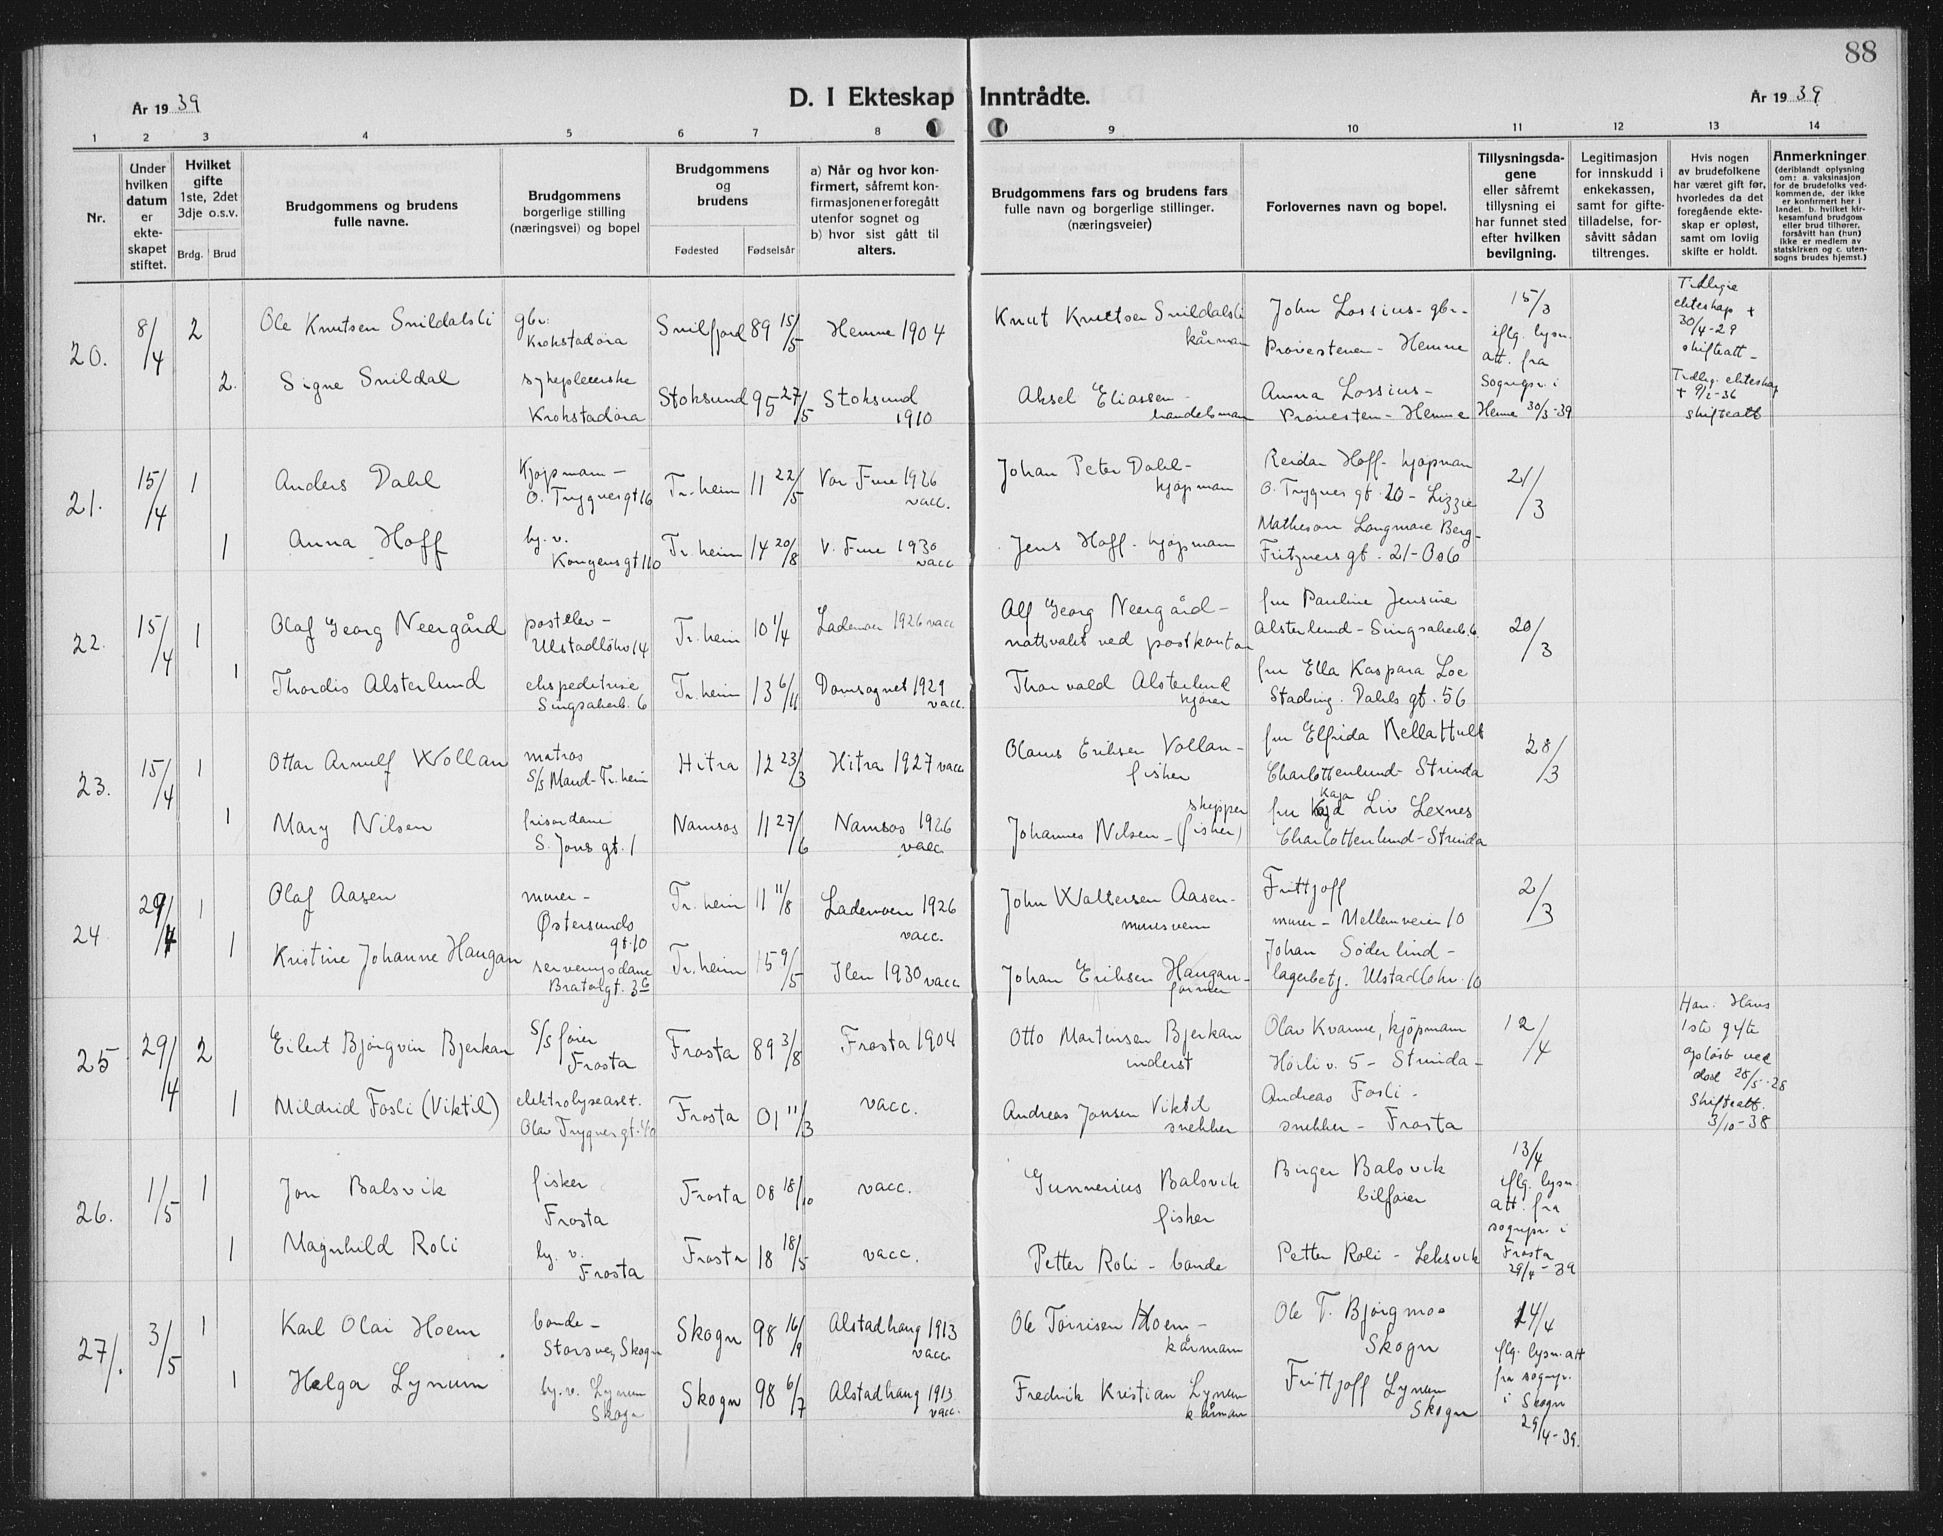 88
År 1939
D. I Ekteskap Inntrådte.
År 1939
1 2 3 4 5 6 7 8 9 10 11 12 13 14
Nr.
Under hvilken datum er ekte-skapet stiftet.
Hvilket gifte 1ste, 2det 3dje o.s.v.
Brdg. Brud
Brudgommens og brudens fulle navne.
Brudgommens borgerlige stilling (næringsvei) og bopel
Brudgommens og brudens
Fødested Fødselsår
a) Når og hvor kon-firmert, såfremt kon-firmasjonen er foregått utenfor sognet og
b) hvor sist gått til alters.
Brudgommens fars og brudens fars fulle navn og borgerlige stillinger. (næringsveier)
Forlovernes navn og bopel.
Tillysningsda-gene eller såfremt tillysning ei har funnet sted efter hvilken bevilgning.
Legitimasjon for innskudd i enkekassen, samt for gifte-tilladelse, for-såvitt sådan tiltrenges.
Hvis nogen av brudefolkene har været gift før, hvorledes da det foregående ekte-skap er opløst, samt om lovlig skifte er holdt.
Anmerkninger (deriblandt oplysning om: a. vaksinasjon for de brudefolks ved-kommende, der ikke er konfirmert her i landet. b. hvilket kir-kesamfund brudgom eller brud tilhører, forsåvitt han (hun) ikke er medlem av statskirken og c. uten-sogns brudes hjemst.)
20. 8/4 2 Ole Knutsen Snildalsli gbr. Krokstadøra Snilfjord 89 15/5 Hemne 1904 Knut Knutsen Snildalsli kårman John Lossius - gbr. - Prøvestenen - Hemne 15/3 iflg. lysn. att. fra Sognepr. i Hemne 30/3-39 Tidligere ekteskap + 30/4-29 skifteatt -
2. Signe Snildal sykepleierske Krokstadøra Stoksund 95 27/5 Stoksund 1910 Aksel Eliassen - handelsman Anna Lossius - Prøvesten - Hemne Tidlig. ekteskap + 9/2-36 skifteatt
21. 15/4 1 Anders Dahl Kjøpmann - O. Trygvesgt 16 Tr.heim 11 22/5 Vor Frue 1926 vacc. Johan Peter Dahl - kjøpman Reidar Hoff - kjøpman O. Trygves gt. 20 - Lizzie 21/3
1 Anna Hoff hj. v. Kongensgt 110 Tr.heim 14 20/8 V. Frue 1930 vacc Jens Hoff - kjøpmann Matheson Longmore Berg - Fritznersgt. 21 - Oslo
22. 15/4 1 Olaf Georg Neergård postelev - Ulstadløkv 14 Tr.heim 10 1/4 Lademoen 1926 vacc Alf Georg Neergård - nattvakt ved postkontor fru Pauline Jensine Alsterlund - Singsakerb. 6. 20/3
1 Thordis Alsterlund ekspeditrise Singsakerb. 6 Tr.heim 13 6/11 Domsognet 1929 vacc. Thorvald Alsterlund kjører fru Ella Kaspara Loe Stadsing. Dahls gt. 56
23. 15/4 1 Ottar Arnulf Wollan matros S/S Maud - Tr.heim Hitra 12 23/3 Hitra 1927 vacc Olaus Eriksen Vollan - fisker fru Elfrida Kella Hult Charlottenlund - Strinda 28/3
1 Mary Nilsen frisørdame S. Jons gt. 1 Namsos 11 27/6 Namsos 1926 vacc. Johannes Nilsen - (fisker) skipper fru Kaja Liv Lexnes Charlottenlund - Strinda
24. 29/4 1 Olaf Aasen murer - Østersunds gt. 10 Tr.heim 11 11/8 Lademoen 1926 vacc. John Waltersen Aasen - muresvenn Frittjoff murer - Mellemveien 10 2/3
1 Kristine Johanne Haugan serveringsdame Bratørgt. 36 Tr.heim 15 9/5 Ilen 1930 vacc Johan Eriksen Haugan - former Johan Söderlind - lagerbetj. Ulstadløkv. 10
25 29/4 2 Eilert Bjørgvin Bjerkan S/S fører Frosta Frosta 89 3/8 Frosta 1904 Otto Martinsen Bjerkan inderst Olav Kvamme, kjøpmann Høiliv. 5 - Strinda - 12/4 Han. Hans 1ste gifte opløst ved død 28/5-28 Skifteatt. 3/10-38
1 Mildrid Fosli (Viktil) elektrolyseast. Olav Trygvesgt. 40 Frosta 01 11/3 vacc. Andreas Jonsen Viktil snekker Andreas Fosli - snekker - Frosta
26. 1/5 1 Jon Balsvik fisker Frosta Frosta 08 18/10 vacc. Gunnerius Balsvik fisker Birger Balsvik bilfører 13/4 iflg. lysn. att. fra sognepr. i Frosta 29/4-39
1 Magnhild Roli hj. v. Frosta Frosta 18 18/5 vacc. Petter Roli - bonde Petter Roli - Leksvik
27/. 3/5 1 Karl Olai Hoem bonde - Storsve, Skogn Skogn 98 16/9 Alstadhaug 1913 vacc. Ole Tørrisen Hoem - kårmann Ole T. Bjørgmo Skogn 14/4 iflg. lysn. att fra sognepr. i Skogn 29/4-39.
1 Helga Lynum hj. v. Lynum Skogn Skogn 98 6/7 Alstadhaug 1913 vacc. Fredrik Kristian Lynum kårman Frittjoff Lynum Skogn